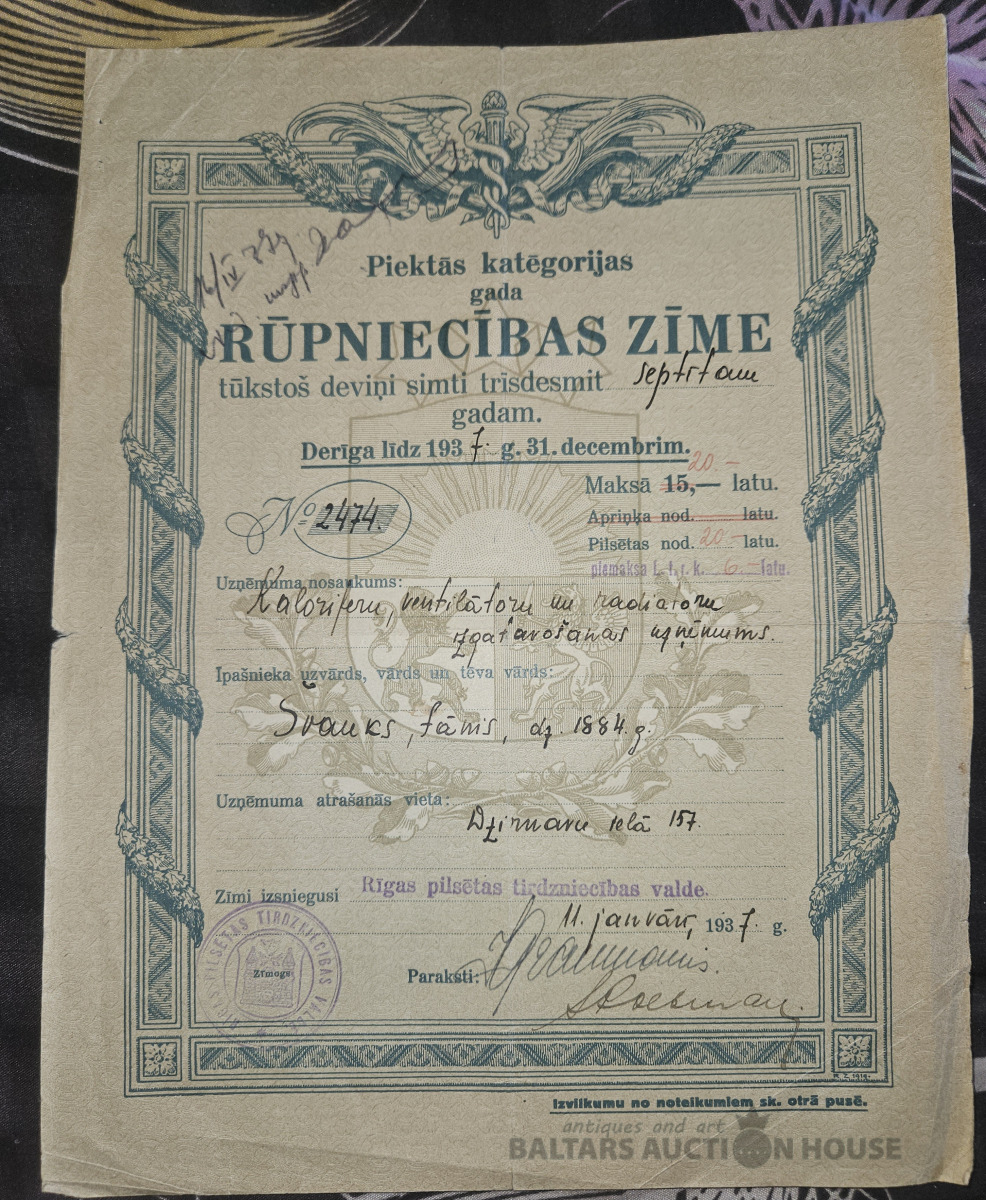 16/IV 37g.
Piektās katēgorijas
gada
RŪPNIECĪBAS ZĪME
tūkstoš deviņi simti trīsdesmit septītam
gadam.
Derīga līdz 1937. g. 31. decembrim.
20.—
Maksā 15,— latu.
№ 2474.
Apriņķa nod. latu.
Pilsētas nod. 20.— latu.
piemaksa L. t. r. k. 6.— latu.
Uzņēmuma nosaukums:
Kaloriferu, ventilātoru un radiatoru
izgatavošanas uzņēmums.
Īpašnieka uzvārds, vārds un tēva vārds:
Švauks, Jānis, dz. 1884. g.
Uzņēmuma atrašanās vieta:
Dzirnavu ielā 157.
Zīmi izsniegusi Rīgas pilsētas tirdzniecības valde.
11. janvārī, 1937. g.
RĪGAS PILSĒTAS TIRDZNIECĪBAS VALDE
Zīmogs
Paraksti:
R. Z. 1919.
Izvilkumu no noteikumiem sk. otrā pusē.
antiques and art
BALTARS AUCTION HOUSE